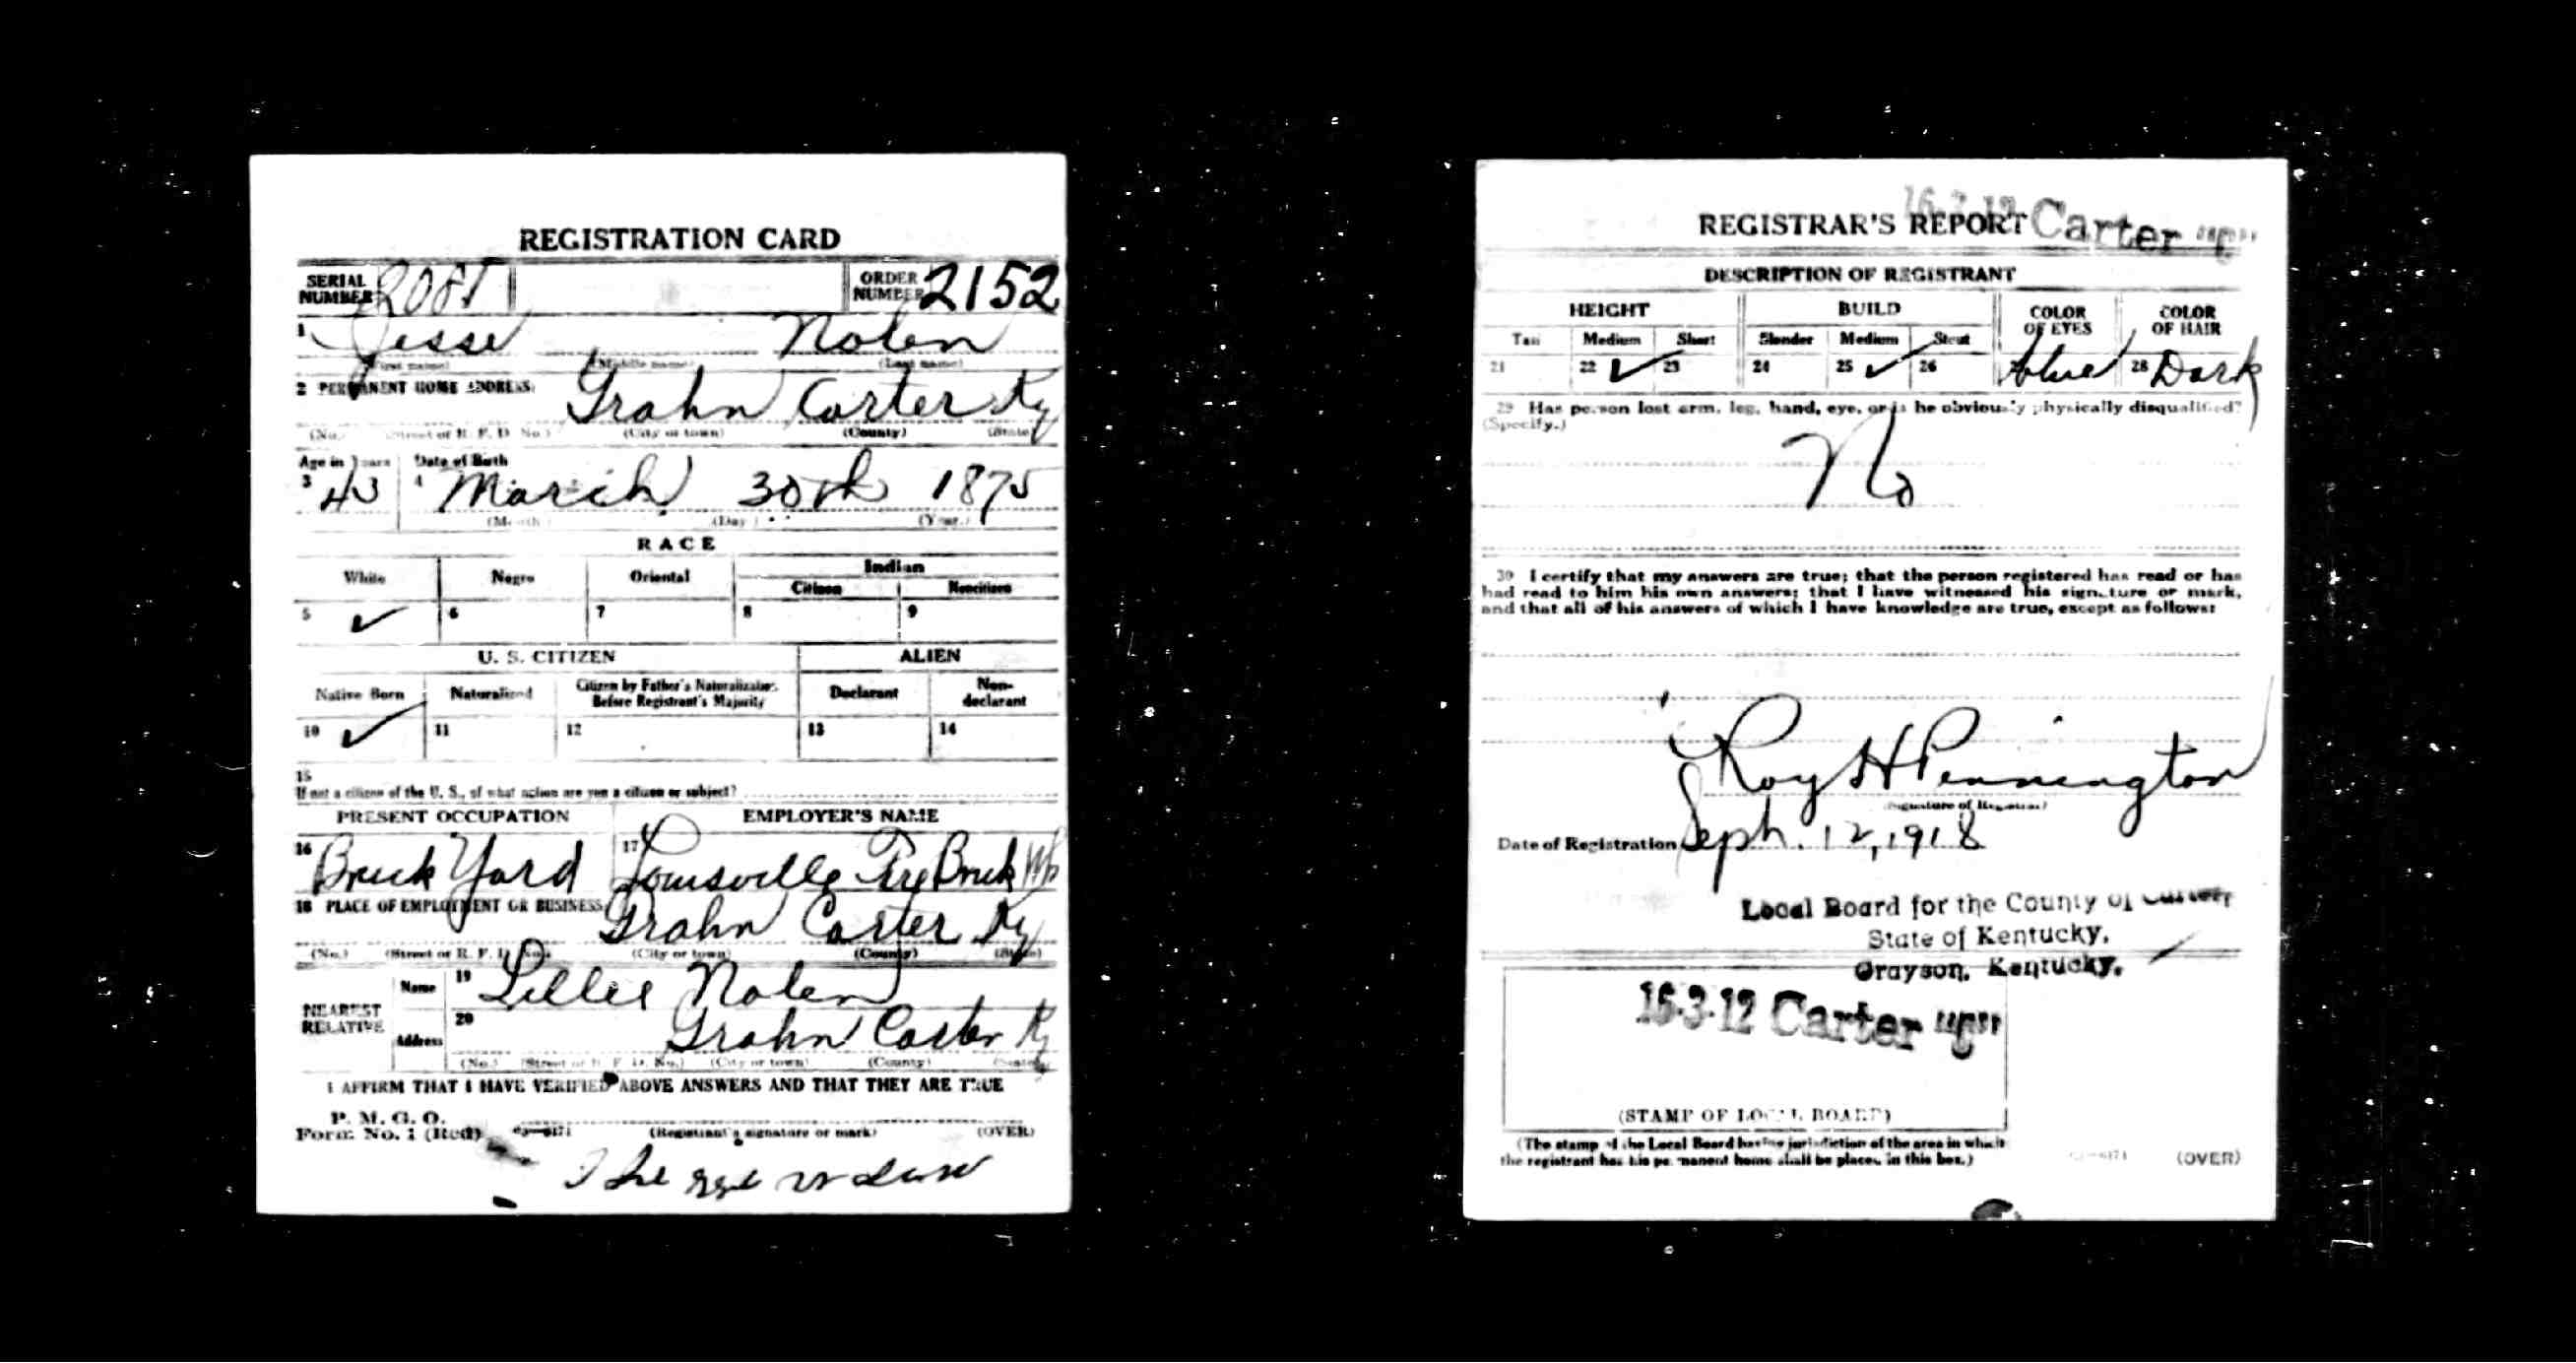 REGISTRATION CARD
SERIAL NUMBER ORDER NUMBER 2152
1 Jesse Nolen
(First name) (Middle name) (Last name)
2 PERMANENT HOME ADDRESS:
Grahn Carter Ky
(No.) (Street or R. F. D. No.) (City or town) (County) (State)
Age in Years Date of Birth
3 43 4 March 30th 1875
(Month) (Day) (Year)
RACE
White Negro Oriental Indian
Citizen Noncitizen
5 ✓ 6 7 8 9
U. S. CITIZEN ALIEN
Native Born Naturalized Citizen by Father's Naturalization Before Registrant's Majority Declarant Non-declarant
10 ✓ 11 12 13 14
15
If not a citizen of the U. S., of what nation are you a citizen or subject?
PRESENT OCCUPATION EMPLOYER'S NAME
16 Brick Yard 17 Louisville Brick
18 PLACE OF EMPLOYMENT OR BUSINESS:
Grahn Carter Ky
(No.) (Street or R. F. D. No.) (City or town) (County) (State)
NEAREST RELATIVE Name 19 Lillie Nolen
Address 20 Grahn Carter Ky
(No.) (Street or R. F. D. No.) (City or town) (County) (State)
I AFFIRM THAT I HAVE VERIFIED ABOVE ANSWERS AND THAT THEY ARE TRUE
P. M. G. O.
Form No. 1 (Red) (Registrant's signature or mark) (OVER)
REGISTRAR'S REPORT Carter "C"
DESCRIPTION OF REGISTRANT
HEIGHT BUILD COLOR OF EYES COLOR OF HAIR
Tall Medium Short Slender Medium Stout
21 22 ✓ 23 24 25 ✓ 26 blue 28 Dark
29 Has person lost arm, leg, hand, eye, or is he obviously physically disqualified?
(Specify.)
No
30 I certify that my answers are true; that the person registered has read or has
had read to him his own answers; that I have witnessed his signature or mark,
and that all of his answers of which I have knowledge are true, except as follows:
Roy H Pennington
(Signature of Registrar)
Date of Registration Seph. 12, 1918
Local Board for the County of Carter,
State of Kentucky,
Grayson, Kentucky.
16-3-12 Carter "C"
(STAMP OF LOCAL BOARD)
(The stamp of the Local Board having jurisdiction of the area in which
the registrant has his permanent home shall be placed in this box.)
(OVER)